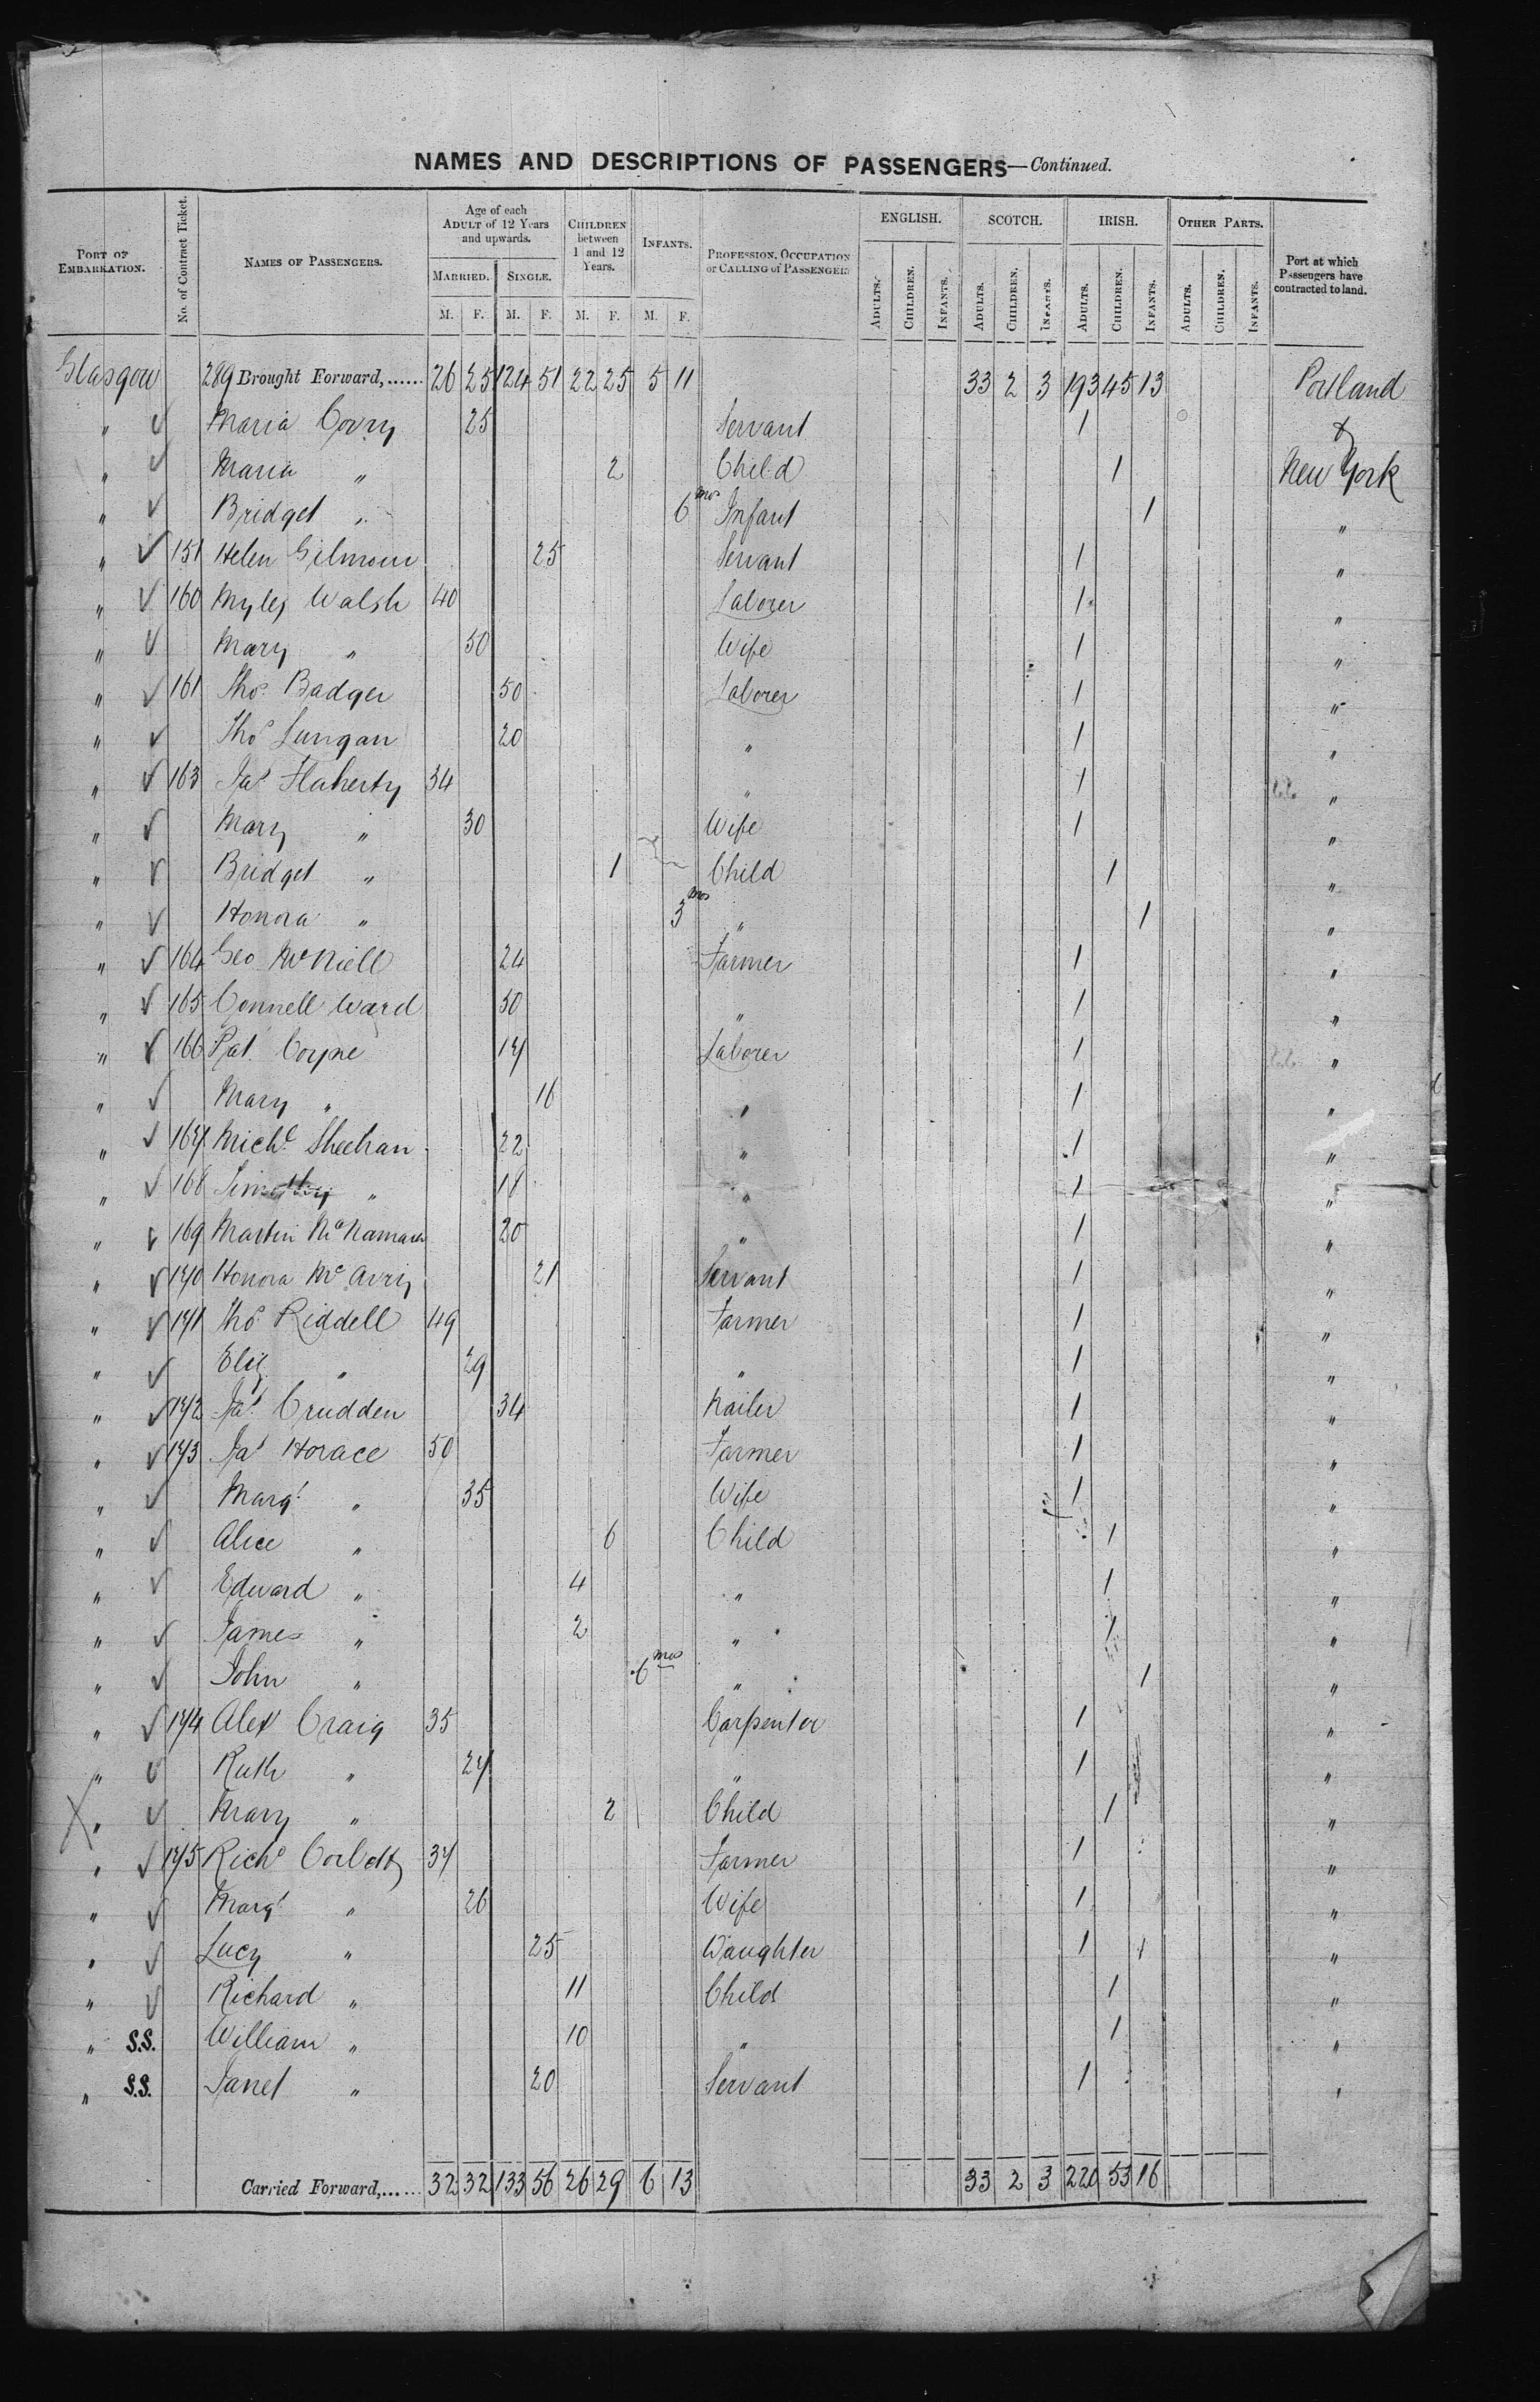 NAMES AND DESCRIPTIONS OF PASSENGERS—Continued.
PORT OF EMBARKATION. No. of Contract Ticket. NAMES OF PASSENGERS. Age of each ADULT of 12 Years and upwards. MARRIED. M. F. SINGLE. M. F. CHILDREN between 1 and 12 Years. M. F. INFANTS. M. F. PROFESSION, OCCUPATION or CALLING of PASSENGER. ENGLISH. ADULTS. CHILDREN. INFANTS. SCOTCH. ADULTS. CHILDREN. INFANTS. IRISH. ADULTS. CHILDREN. INFANTS. OTHER PARTS. ADULTS. CHILDREN. INFANTS. Port at which Passengers have contracted to land.
Glasgow 289 Brought Forward,...... 26 25 124 51 22 25 5 11 33 2 3 193 45 13 Portland
" ✓ Maria Covry 25 Servant 1 &
" ✓ Maria " 2 Child 1 New York
" ✓ Bridget " 6 mos Infant 1 "
" ✓ 151 Helen Gilmour 25 Servant 1 "
" ✓ 160 Myles Walsh 40 Laborer 1 "
" ✓ Mary " 50 Wife 1 "
" ✓ 161 Thos Badger 50 Laborer 1 "
" ✓ Thos Lungan 20 " 1 "
" ✓ 163 Jas Flaherty 34 " 1 "
" ✓ Mary " 30 Wife 1 "
" ✓ Bridget " 1 Child 1 "
" ✓ Honora " 3 mos " 1 "
" ✓ 164 Geo McNiell 24 Farmer 1 "
" ✓ 165 Connell Ward 50 " 1 "
" ✓ 166 Pat. Coyne 17 Laborer 1 "
" ✓ Mary " 16 " 1 "
" ✓ 167 Michl Sheehan 22 " 1 "
" ✓ 168 Timothy " 18 " 1 "
" ✓ 169 Martin McNamara 20 " 1 "
" ✓ 170 Honora McAvry 21 Servant 1 "
" ✓ 171 Thos Riddell 49 Farmer 1 "
" ✓ Eliz " 29 " 1 "
" ✓ 172 Jas Crudden 34 Nailer 1 "
" ✓ 173 Jas Horace 50 Farmer 1 "
" ✓ Margt " 35 Wife 1 "
" ✓ Alice " 6 Child 1 "
" ✓ Edward " 4 " 1 "
" ✓ James " 2 " 1 "
" ✓ John " 6 mos " 1 "
" ✓ 174 Alex Craig 35 Carpenter 1 "
" ✓ Ruth " 27 " 1 "
X " ✓ Mary " 2 Child 1 "
" ✓ 175 Richd Corbett 37 Farmer 1 "
" ✓ Margt " 26 Wife 1 "
" ✓ Lucy " 25 Daughter 1 "
" ✓ Richard " 11 Child 1 "
" S.S. William " 10 " 1 "
" S.S. Janet " 20 Servant 1 "
Carried Forward,...... 32 32 133 56 26 29 6 13 33 2 3 220 53 16